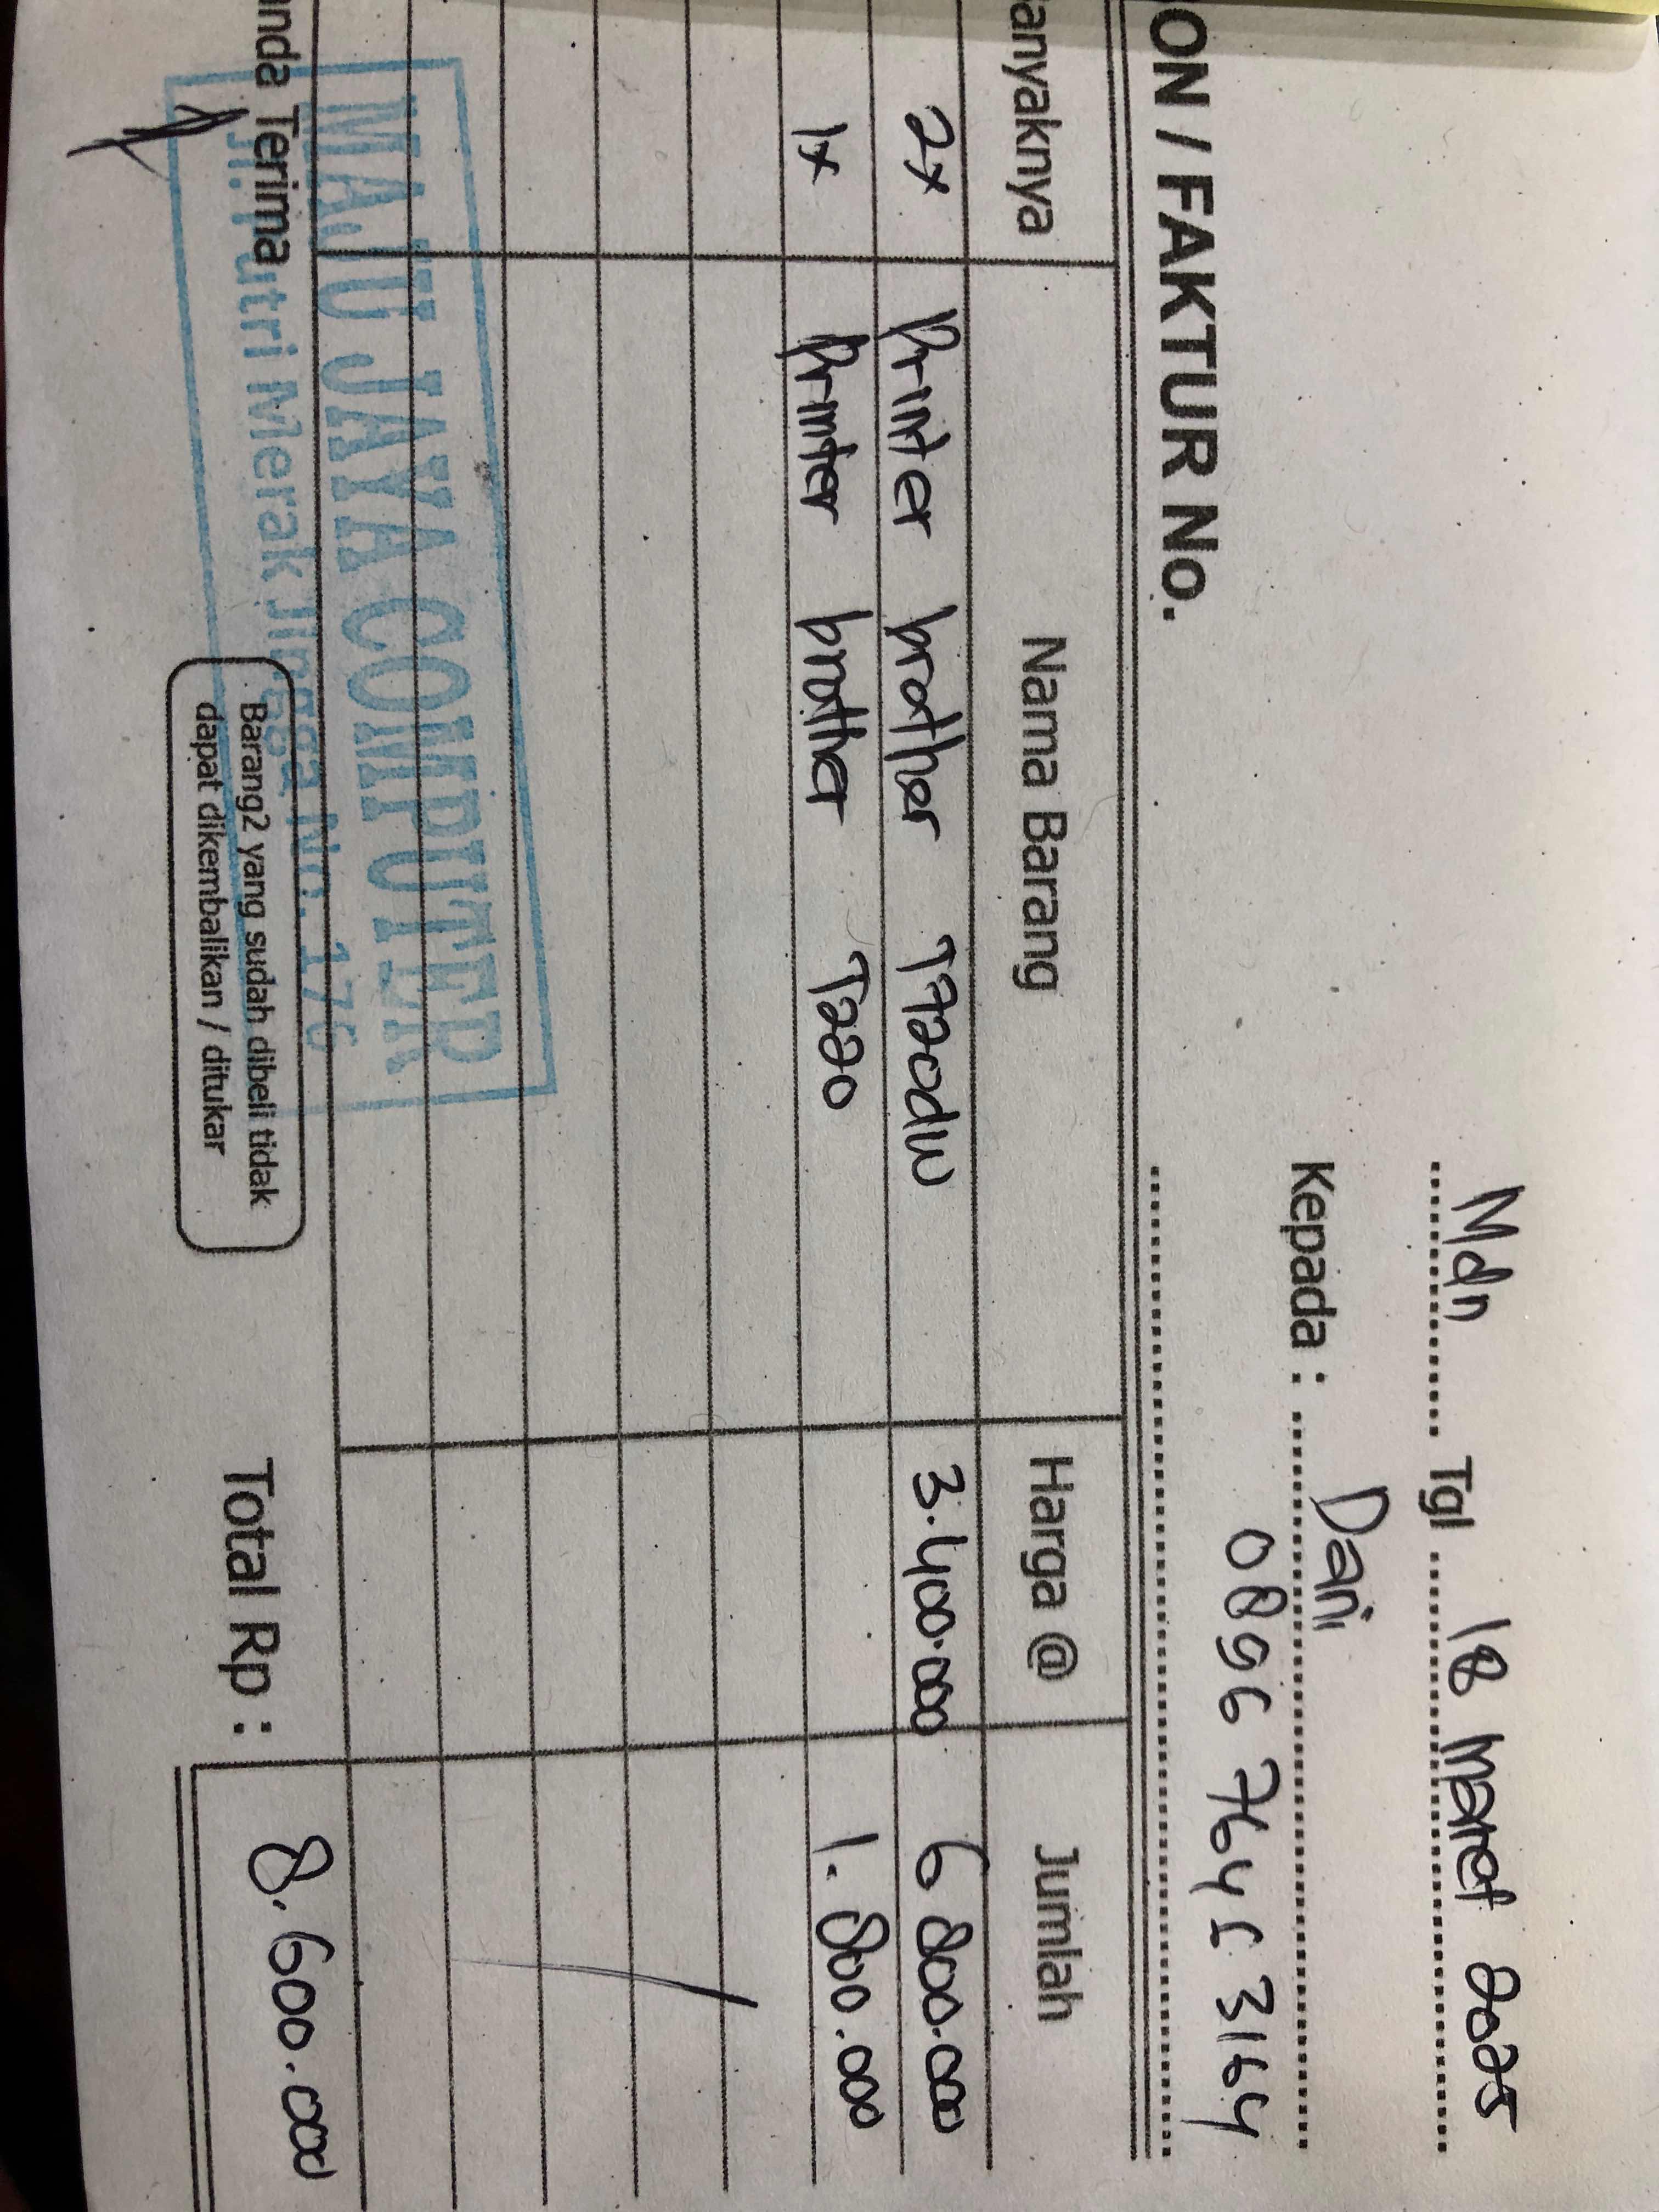 Mdn Tgl 18 Maret 2025
Kepada : Dani
0896 7645 3164
ON / FAKTUR No.
anyaknya Nama Barang Harga @ Jumlah
2x Printer brother T720dw 3.400.000 6 800.000
1x Printer brother T220 1.800.000
MAJU JAYA COMPUTER
Jl. Putri Merak Jingga No. 176
anda Terima
Barang2 yang sudah dibeli tidak
dapat dikembalikan / ditukar
Total Rp : 8.600.000